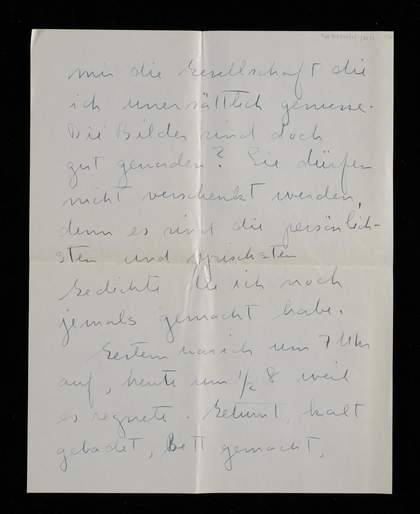 mir die Gesellschaft die
ich unersättlich geniesse.
Die Bilder sind doch
gut geworden? Sie dürfen
nicht verschenkt werden,
denn es sind die persönlich-
sten und lyrischsten
Gedichte die ich noch
jemals gemacht habe.
Gestern war ich um 7 Uhr
auf, heute um 1/2 8 weil
es regnete. Geturnt, kalt
gebadet, Bett gemacht,